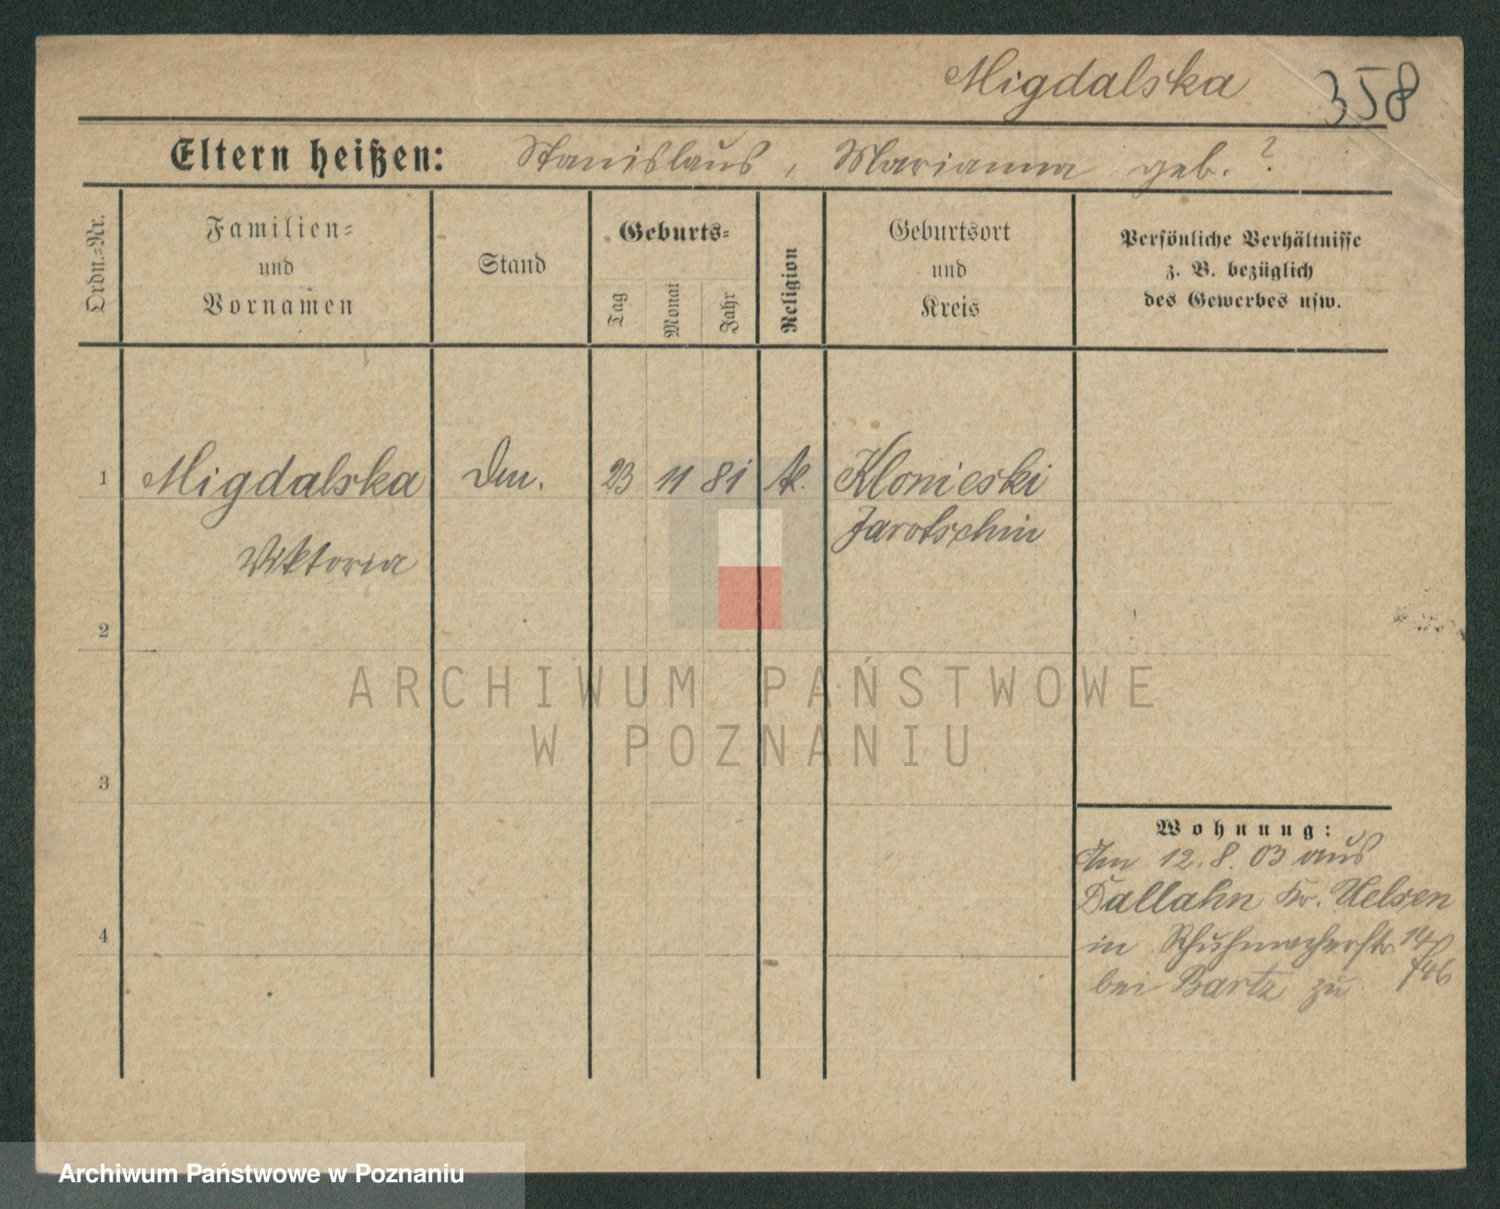 Migdalska 358
Eltern heißen: Stanislaus, Marianna geb. ?
Ordn.-Nr.
Familien-
und
Vornamen
Stand
Geburts-
Tag
Monat
Jahr
Religion
Geburtsort
und
Kreis
Persönliche Verhältnisse
z. B. bezüglich
des Gewerbes usw.
1 Migdalska 23 11 81 k. Klonieski
Viktoria
Jarotschin
2
3
4
Wohnung:
Am 12. 8. 03 aus
Dallahn Kr. Uelsen
in Schuhmacherstr. 14
bei Bartz zu 746
ARCHIWUM PAŃSTWOWE
W POZNANIU
Archiwum Państwowe w Poznaniu